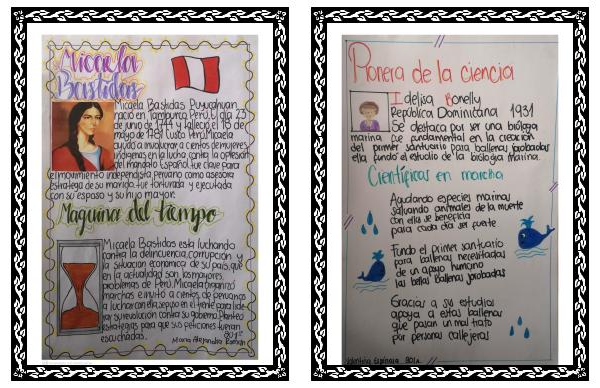 Micaela
Bastidas
Micaela Bastidas Puyucahuan
nació en Tamburco Perú el día 23
de junio de 1744 y falleció el 18 de
mayo de 1781 Cusco Perú. Micaela
ayudo a involucrar a cientos de mujeres
indígenas en la lucha contra la opresión
del mandato Español, fue clave para
el movimiento independista peruano como asesora
estratega de su marido, fue torturada y ejecutada
con su esposo y su hijo mayor.
Maquina del tiempo
Micaela Bastidas esta luchando
contra la delincuencia, corrupción y
la situación economica de su país, que
en la actualidad son los mayores
problemas de Perú. Micaela organizó
marchas e invitó a cientos de peruanos
a luchar con ella, se puso en el frente para lide
rar su revolución contra su gobierno. Planteo
estrategias para que sus peticiones fueran
escuchadas.
801
Maria Alejandra Roncan
Pionera de la ciencia
Idelisa Bonelly
República Dominicana 1931
Se destaca por ser una bióloga
marina fue fundamental en la creación
del primer santuario para ballenas jorobadas
ella fundo el estudio de la biología marina.
Científicas en marcha
Ayudando especies marinas
salvando animales de la muerte
con ella se beneficia
para cada día ser fuerte
Fundo el primer santuario
para ballenas necesitadas
de un apoyo humano
las bellas ballenas jorobadas
Gracias a su estudios
apoya a estas ballenas
que pasan un mal trato
por personas callejeras
Valentina Espinosa 801